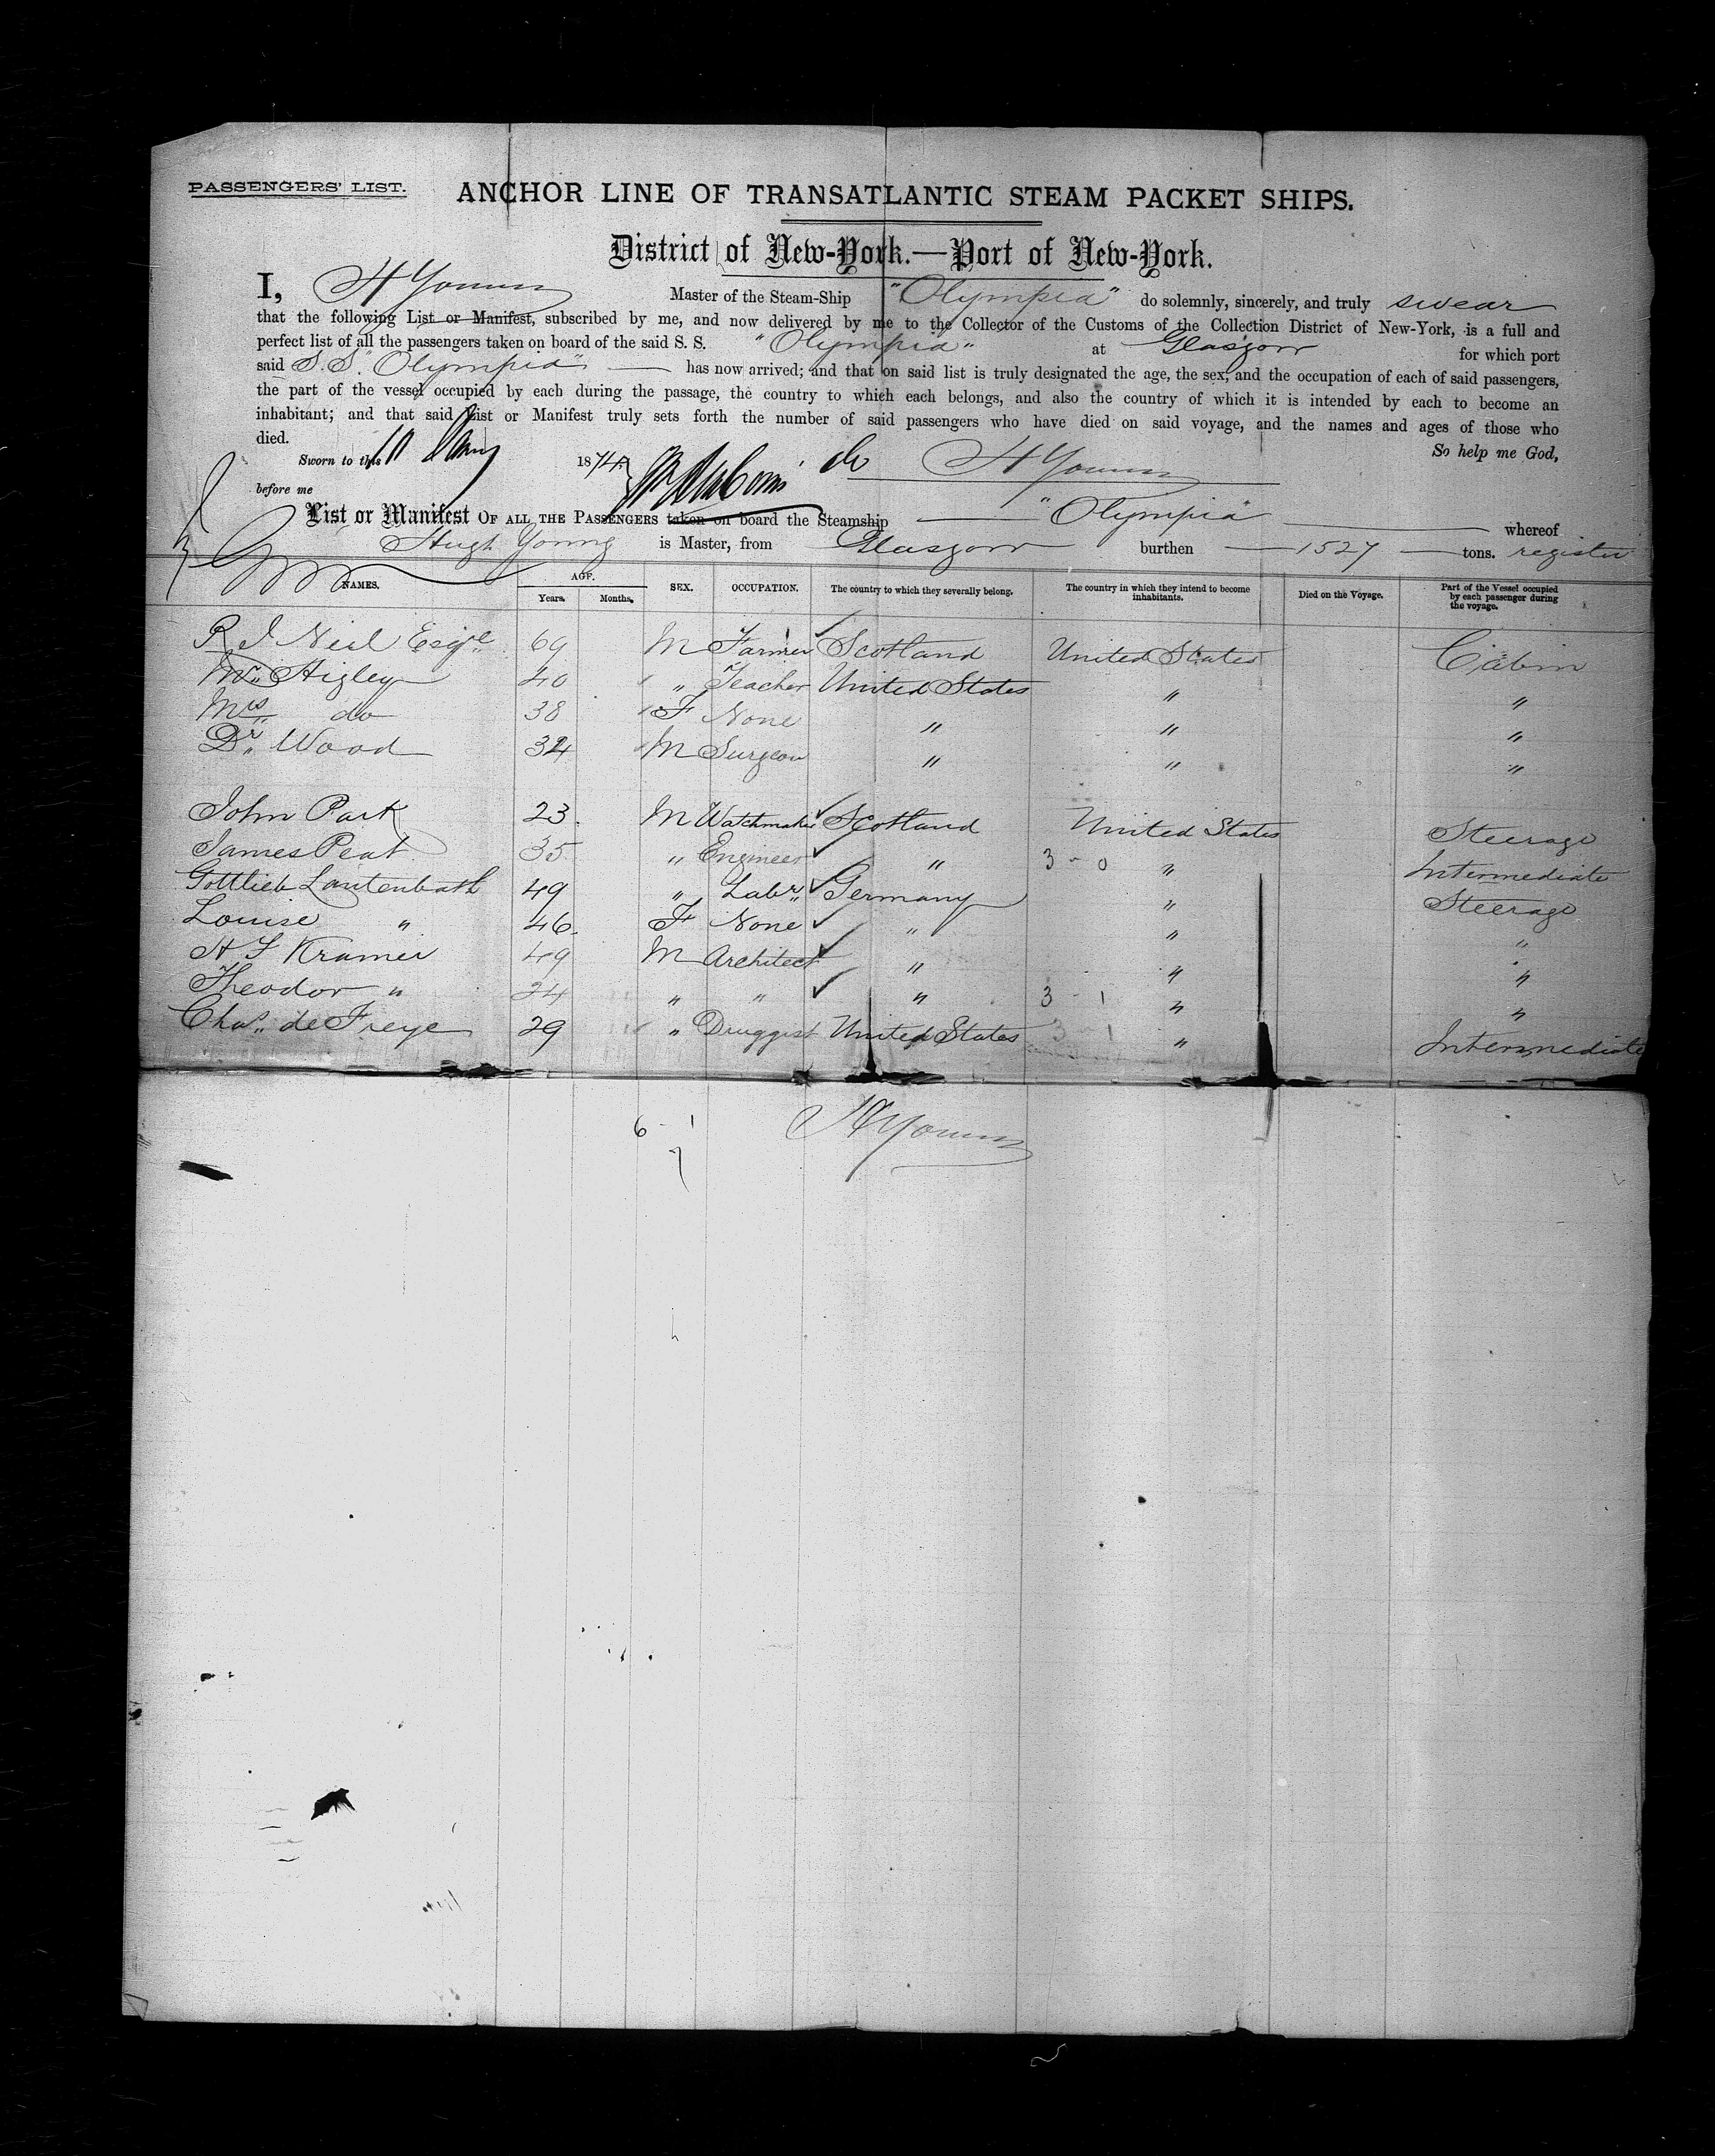 PASSENGERS' LIST.
ANCHOR LINE OF TRANSATLANTIC STEAM PACKET SHIPS.
District of New-York.—Port of New-York.
I, H Young Master of the Steam-Ship "Olympia" do solemnly, sincerely, and truly swear
that the following List or Manifest, subscribed by me, and now delivered by me to the Collector of the Customs of the Collection District of New-York, is a full and
perfect list of all the passengers taken on board of the said S. S. "Olympia" at Glasgow for which port
said S.S. "Olympia" has now arrived; and that on said list is truly designated the age, the sex, and the occupation of each of said passengers,
the part of the vessel occupied by each during the passage, the country to which each belongs, and also the country of which it is intended by each to become an
inhabitant; and that said List or Manifest truly sets forth the number of said passengers who have died on said voyage, and the names and ages of those who
died. So help me God,
Sworn to this 10 Jany 1874 H Young
before me
List or Manifest OF ALL THE PASSENGERS taken on board the Steamship "Olympia" whereof
Hugh Young is Master, from Glasgow burthen 1527 tons. register
NAMES. AGE. Years. Months. SEX. OCCUPATION. The country to which they severally belong. The country in which they intend to become inhabitants. Died on the Voyage. Part of the Vessel occupied by each passenger during the voyage.
R J Neil Esqre 69 M Farmer Scotland United States Cabin
Mr Higley 40 " Teacher United States " "
Mrs do 38 F None " " "
Dr Wood 34 M Surgeon " " "
John Park 23 M Watchmaker Scotland United States Steerage
James Peat 35 " Engineer " 3-0 " Intermediate
Gottlieb Lautenbath 49 " Labr Germany " Steerage
Louise " 46 F None " " "
H F Kramer 49 M Architect " " "
Theodor " 24 " " " 3-1 " "
Chas de Freye 29 " Druggist United States 3 1 " Intermediate
6-1 H Young
7